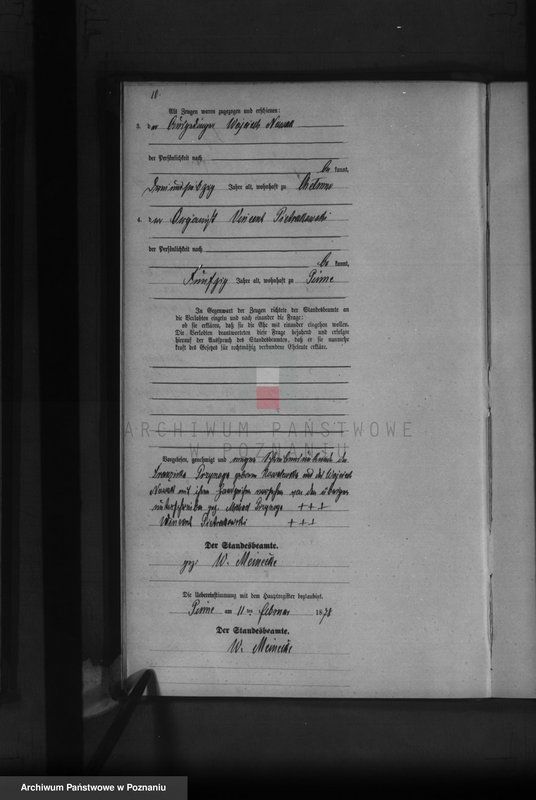 10.
Als Zeugen waren zugezogen und erschienen:
3. der Ausgedinger Wojciech Nawak
der Persönlichkeit nach
be kannt,
dreiundsechzig Jahre alt, wohnhaft zu Chelmno
4. der Organist Vincent Pietrakowski
der Persönlichkeit nach
be kannt,
fünfzig Jahre alt, wohnhaft zu Pinne
In Gegenwart der Zeugen richtete der Standesbeamte an
die Verlobten einzeln und nach einander die Frage:
ob sie erklären, daß sie die Ehe mit einander eingehen wollen.
Die Verlobten beantworteten diese Frage bejahend und erfolgte
hierauf der Ausspruch des Standesbeamten, daß er sie nunmehr
kraft des Gesetzes für rechtmäßig verbundene Eheleute erkläre.
ARCHIWUM PAŃSTWOWE
W POZNANIU
Vorgelesen, genehmigt und wegen Schreibensunkunde der
Franziska geborene und des Wojciech
Nawak mit ihren Handzeichen versehen von den übrigen
unterschrieben gez. +++
Vincent Pietrakowski +++
Der Standesbeamte.
gez W. Meinecke
Die Uebereinstimmung mit dem Hauptregister beglaubigt.
Pinne am 11 ten Februar 1878
Der Standesbeamte.
W. Meinecke
Archiwum Państwowe w Poznaniu